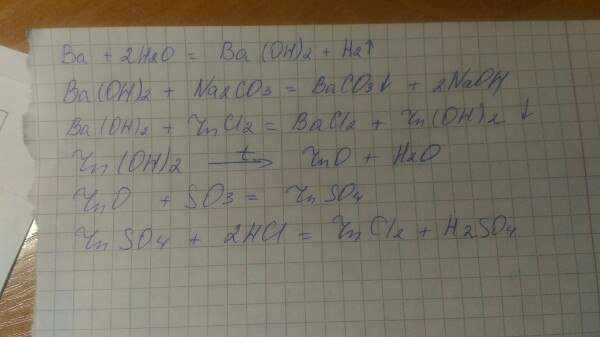 Ba + 2H2O = Ba(OH)2 + H2↑
Ba(OH)2 + Na2CO3 = BaCO3↓ + 2NaOH
Ba(OH)2 + ZnCl2 = BaCl2 + Zn(OH)2 ↓
Zn(OH)2 —t→ ZnO + H2O
ZnO + SO3 = ZnSO4
ZnSO4 + 2HCl = ZnCl2 + H2SO4